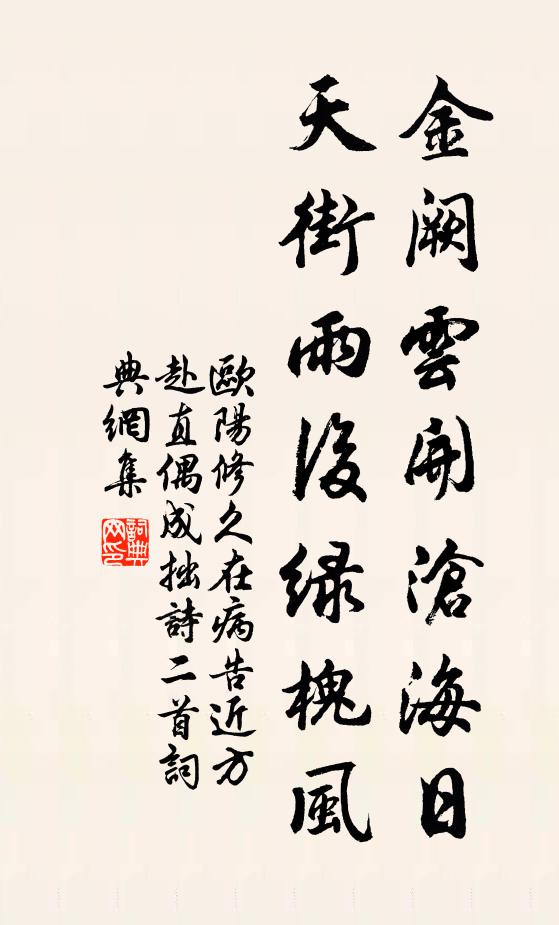 金闕雲開滄海日
天街雨後綠槐風
歐陽修久在病告近方
赴直偶成拙詩二首詞
典網集
詞典網印